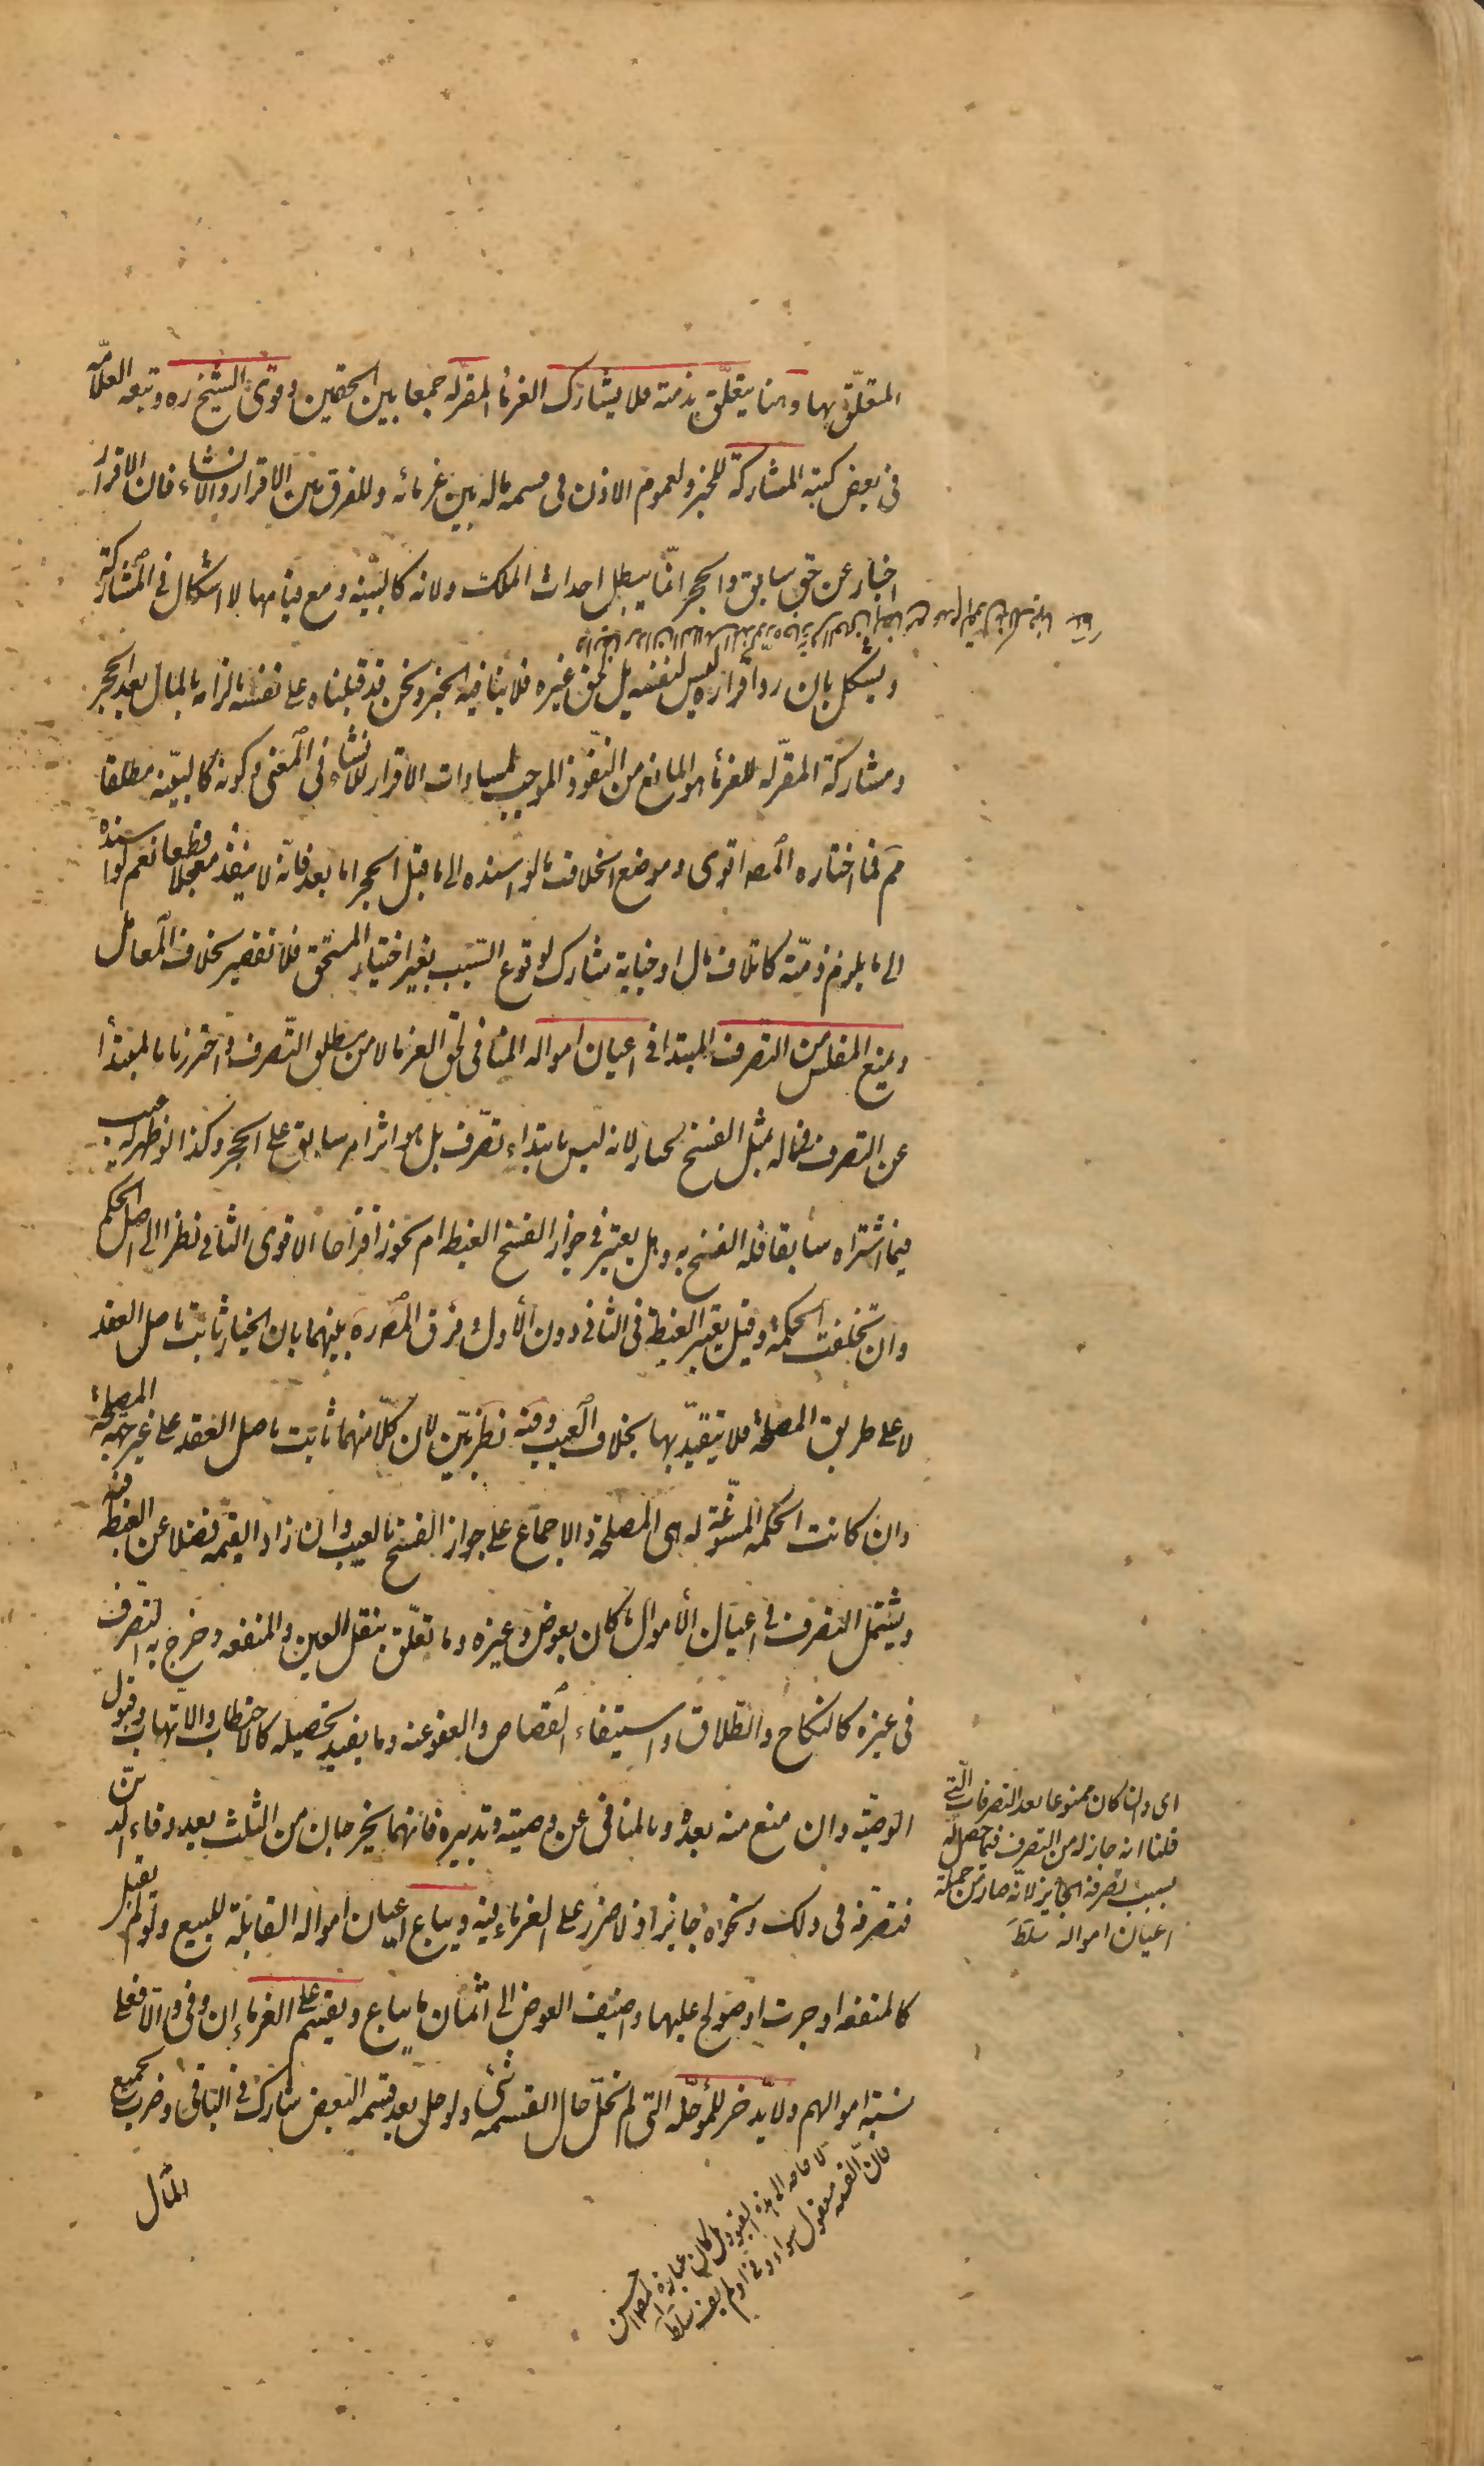 المتعلّق بها وهنا يتعلّق بذمته فلا يشارك الغرماء المقرّله جمعا بين الحقين وقوى الشيخ ره وتبعه العلاّمه
فى بعض كتبه المشاركة للخبر ولعموم الاذن فى قسمه ماله بين غرمائه وللفرق بين الاقرار والانشاء فان الاقرار
اخبار عن حق سابق والحجر انّما يبطل احداث الملك ولانه كالبيّنه ومع قيامها لا اشكال فى المشاركة
ويشكل بان رد اقراره ليس لنفسه بل لحق غيره فلا ينافيه الخبر ونحن قد قبلناه على نفسه بالزامه بالمال بعد الحجر
ومشاركة المقرّله للغرماء هو المانع من النّفوذ الموجب لمساوات الاقرار للانشاء فى المعنى وكونه كالبيّنه مطلقا
مم فما اختاره المصـ اقوى وموضع الخلاف مالو اسنده الى ما قبل الحجر اما بعده فانّه لا ينفذ معجلا قطعا نعم لو اسنده
الى ما يلزم ذمّته كاتلاف مال او جناية شارك لوقوع السّبب بغير اختيار المستحق فلا تقصير بخلاف المعامل
ويمنع المفلس من التصرف المبتدا فى اعيان امواله المنافى لحق الغرماء لا من مطلق التّصرف واحترزنا بالمبتدأ
عن التصرف فى ماله بمثل الفسخ لخيار لانه ليس بابتداء تصّرف بل هو اثر امر سابق على الحجر وكذا لو ظهر له عيب
فيما اشتراه سابقا فله الفسخ به وهل يعتبر فى جواز الفسخ الغبطه ام يجوز اقتراحا الاقوى الثانى نظرا الى اصل الحكم
وان تخلفت الحكمة وقيل يعتبر الغبطة فى الثانى دون الأول وفرّق المصـ ره بينهما بان الخيار ثابت باصل العقد
لا على طريق المصلحة فلا يتقيّد بها بخلاف العيب وفيه نظر بيّن لان كلاّ منهما ثابت باصل العقد على غير جهة المصلحة
وان كانت الحكمه المسوّغة له هى المصلحة والاجماع على جواز الفسخ بالعيب وان زاد القيمه فضلا عن الغبطه فيه
ويشمل التصرف فى اعيان الأموال ما كان بعوض وغيره وما تعلّق بنقل العين والمنفعه وخرج به التصرف
فى غيره كالنكاح والطّلاق واستيفاء القصاص والعفو عنه وما يفيد تحصيله كالاحتطاب والاتهاب وقبول
الوصيّه وان منع منه بعده وبالمنافى عن وصيته وتدبيره فانهما يخرجان من الثلث بعد وفاء الدين
فتصّرفه فى ذلك ونحوه جايز اذ لا ضرر على الغرماء فيه ويباع اعيان امواله القابلة للبيع ولو لم يقبل
كالمنفعه اوجرت او صولح عليها واضيف العوض الى اثمان ما يباع ويقسّم على الغرماء ان وفى والاّ فعلى
نسبة اموالهم ولا يدّخر للمؤجّله التى لم تحلّ حال القسمه شئ ولو حل بعد قسمه البعض شارك فى الباقى وضرب بجميع
المال
اى وان كان ممنوعا بعد التصرفات الّتى
قلنا انه جاز له من التصرف فيما حصل له
بسبب تصرفه الجايز لانّه صار من جملة
اعيان امواله سلط